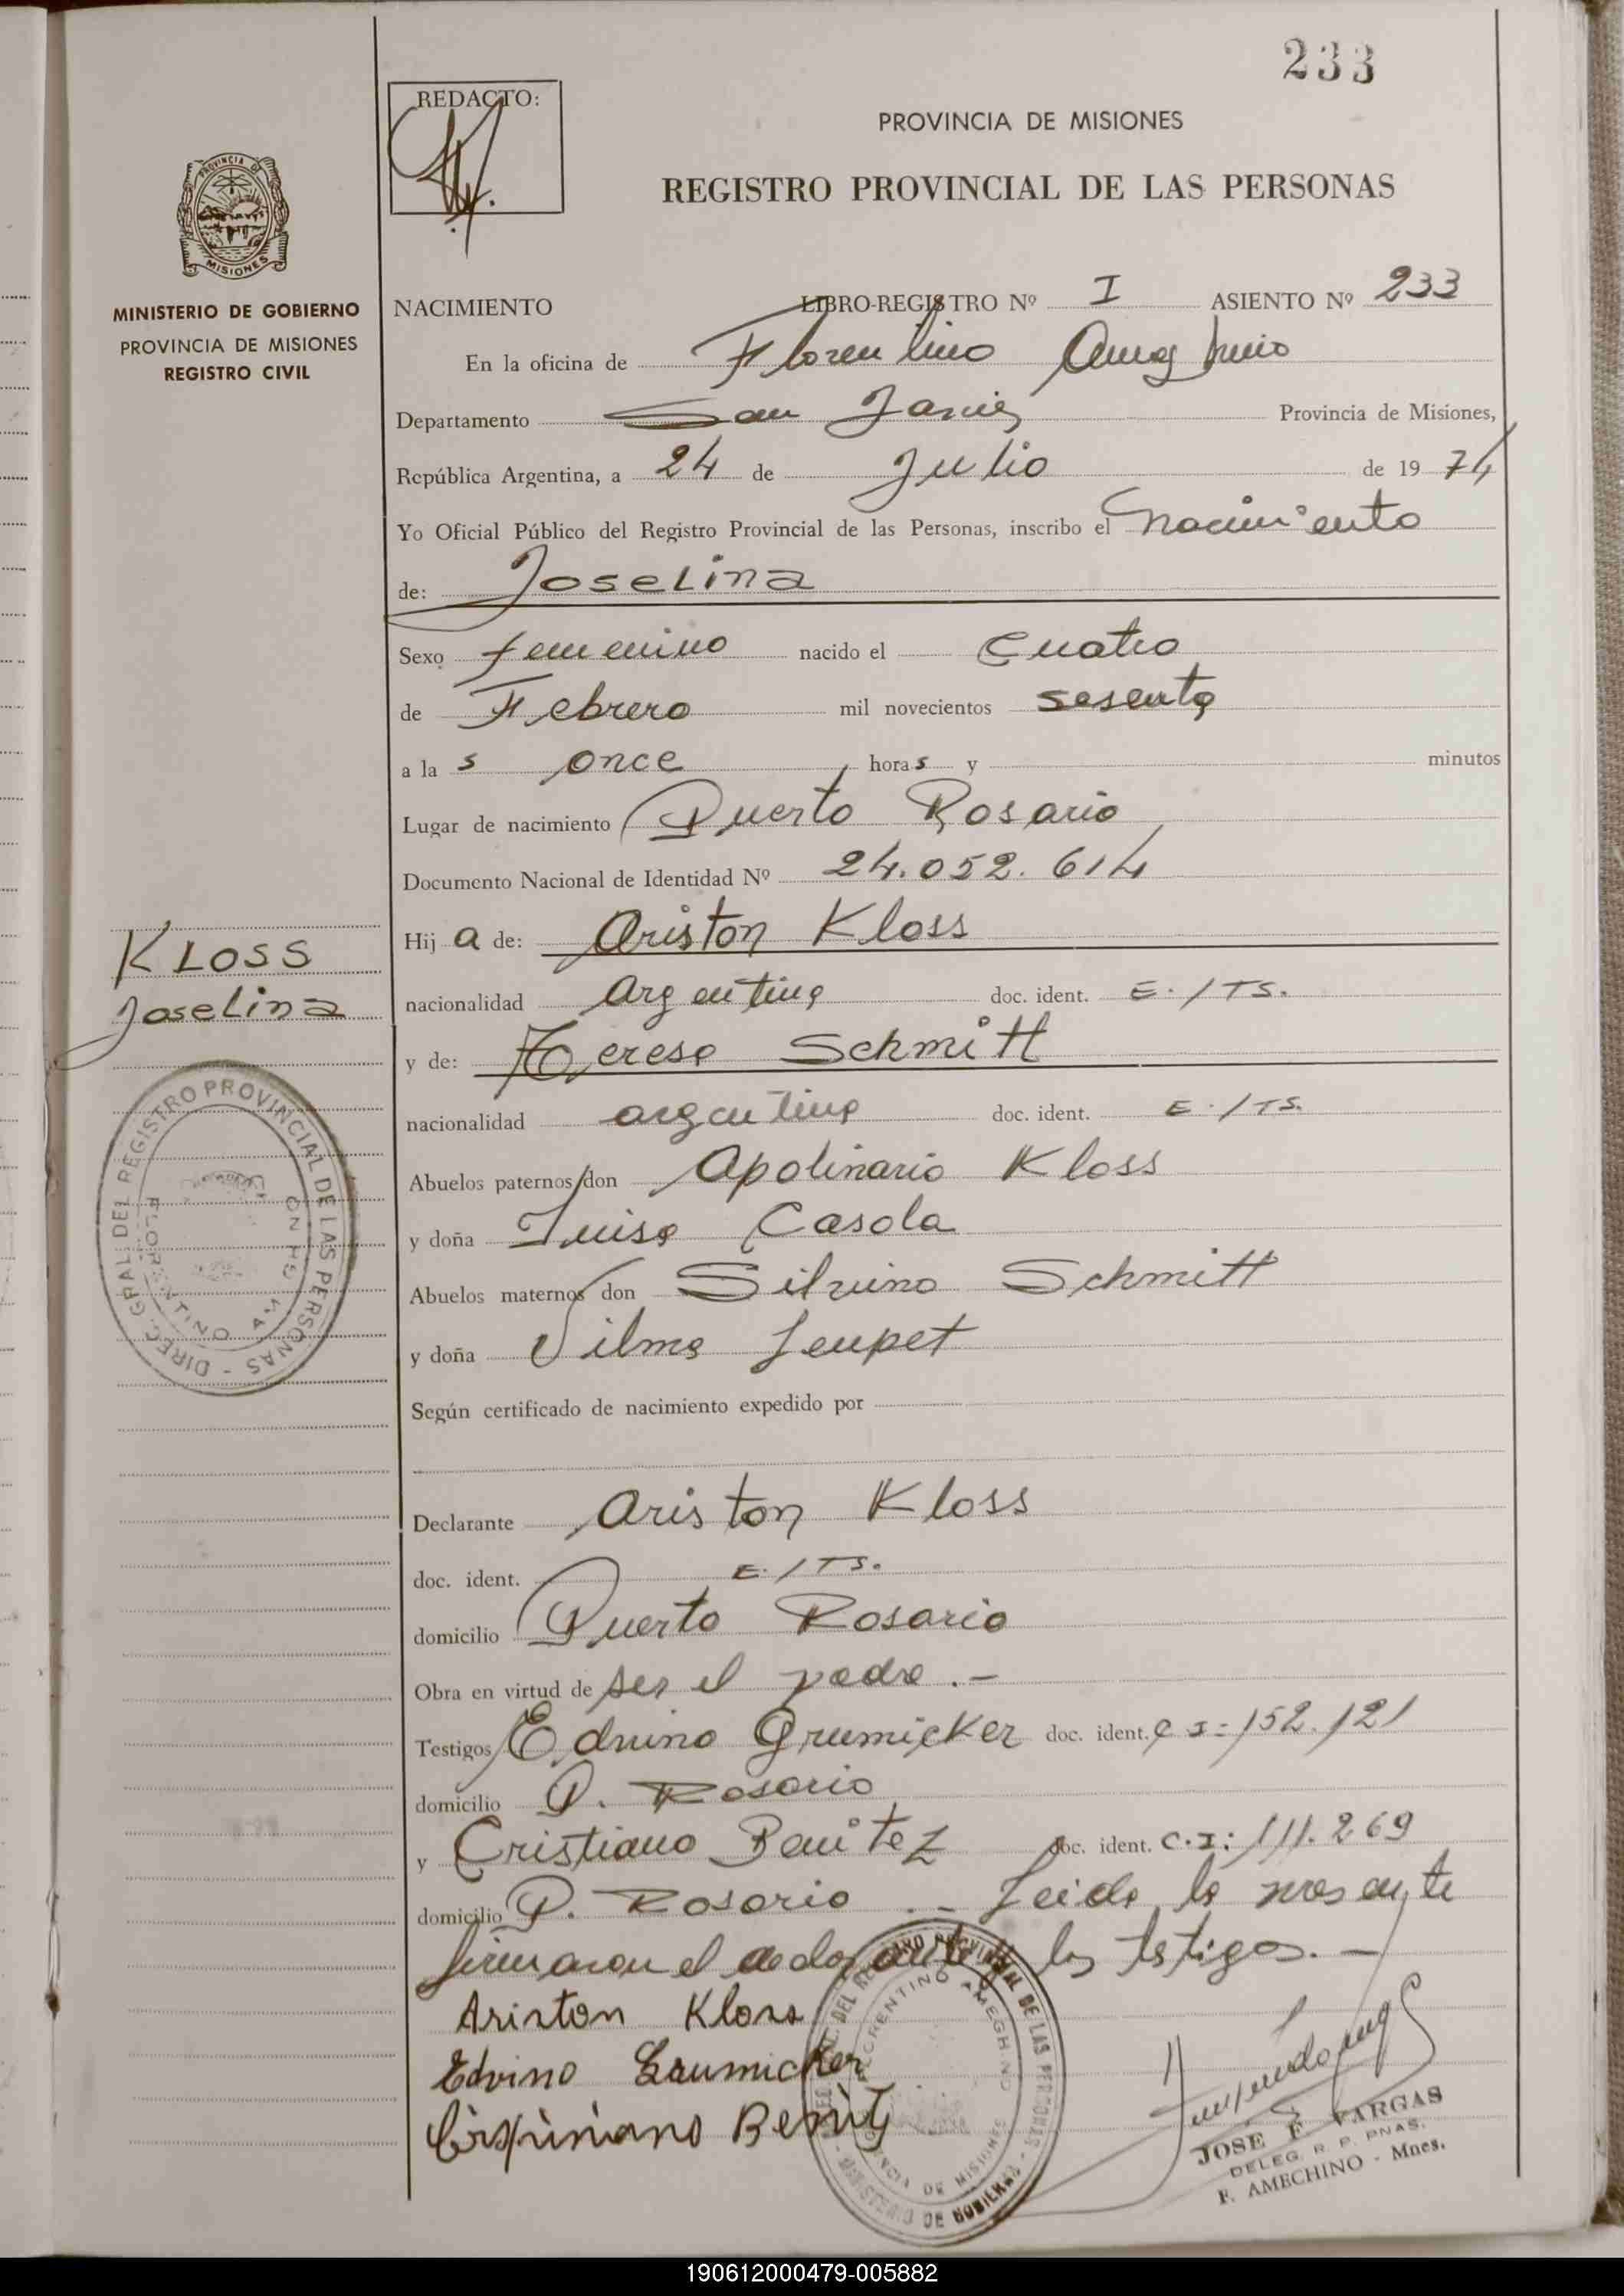 233
REDACTO:
PROVINCIA DE MISIONES
REGISTRO PROVINCIAL DE LAS PERSONAS
PROVINCIA DE
MISIONES
MINISTERIO DE GOBIERNO
PROVINCIA DE MISIONES
REGISTRO CIVIL
NACIMIENTO LIBRO-REGISTRO Nº I ASIENTO Nº 233
En la oficina de Florentino Ameghino
Departamento San Javier Provincia de Misiones,
República Argentina, a 24 de Julio de 1974
Yo Oficial Público del Registro Provincial de las Personas, inscribo el nacimiento
de: Joselina
Sexo femenino nacido el Cuatro
de Febrero mil novecientos sesenta
a las once horas y minutos
Lugar de nacimiento Puerto Rosario
Documento Nacional de Identidad Nº 24.052.614
Hija de: Ariston Kloss
KLOSS
Joselina
nacionalidad argentina doc. ident. E./TS.
y de: Teresa Schmitt
nacionalidad argentina doc. ident. E./TS.
Abuelos paternos don Apolinario Kloss
y doña Luisa Casola
Abuelos maternos don Silvino Schmitt
y doña Vilma Leupet
DIREC. GRAL. DEL REGISTRO PROVINCIAL DE LAS PERSONAS
FLORENTINO AMEGHINO
Según certificado de nacimiento expedido por
Declarante Ariston Kloss
doc. ident. E./TS.
domicilio Puerto Rosario
Obra en virtud de ser el padre.-
Testigos Edvino Grumicker doc. ident. C I: 152.121
domicilio P. Rosario
y Cristiano Benitez doc. ident. C.I: 111.269
domicilio P. Rosario .- Leida la presente
firmaron el declarante y los testigos.-
Ariston Kloss
Edvino Grumicker
DEL REGISTRO PROVINCIAL DE LAS PERSONAS
FLORENTINO AMEGHINO
PROVINCIA DE MISIONES
MINISTERIO DE GOBIERNO
JOSE F. VARGAS
DELEG. R. P. PNAS.
F. AMECHINO - Mnes.
190612000479-005882